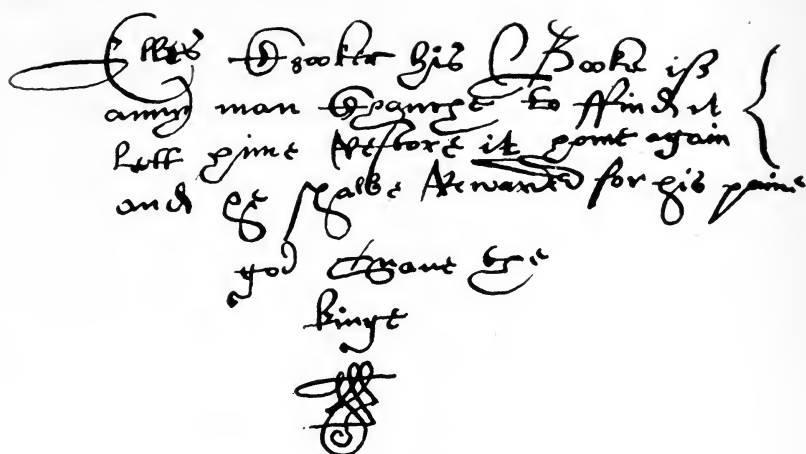 his Booke iff
anny man Chaunce to ffind it
lett hime Restore it home again
and he shalbe Rewared for his paine
god the
kinge